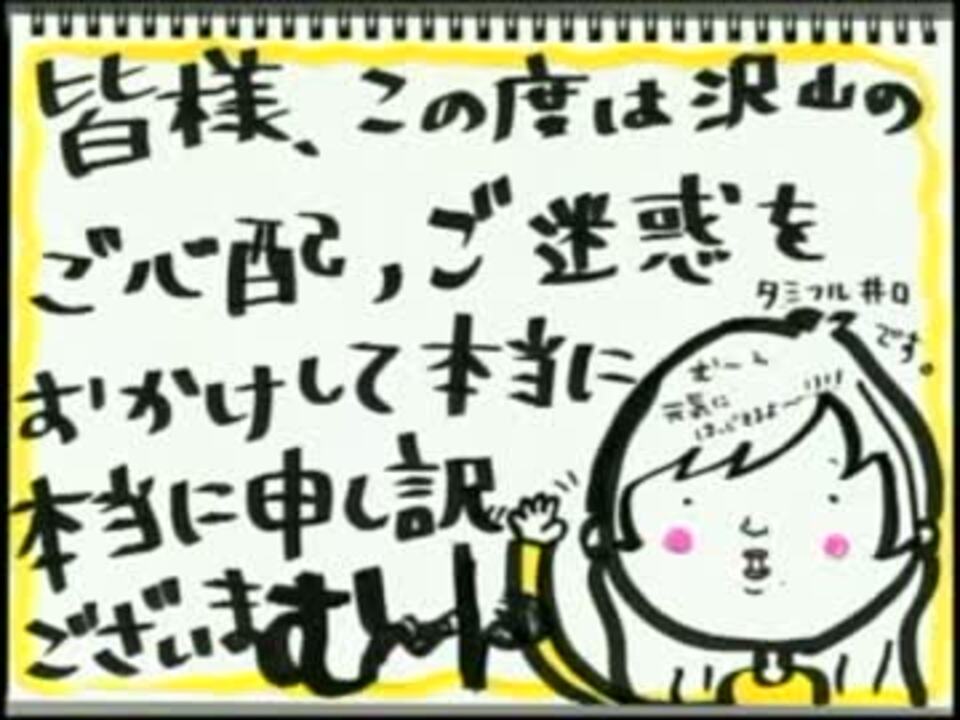 皆様、この度は沢山の
ご心配,ご迷惑を
おかけして本当に
本当に申し訳
ございまむ〜ん
タミフル井口
です。
む〜ん
元気に